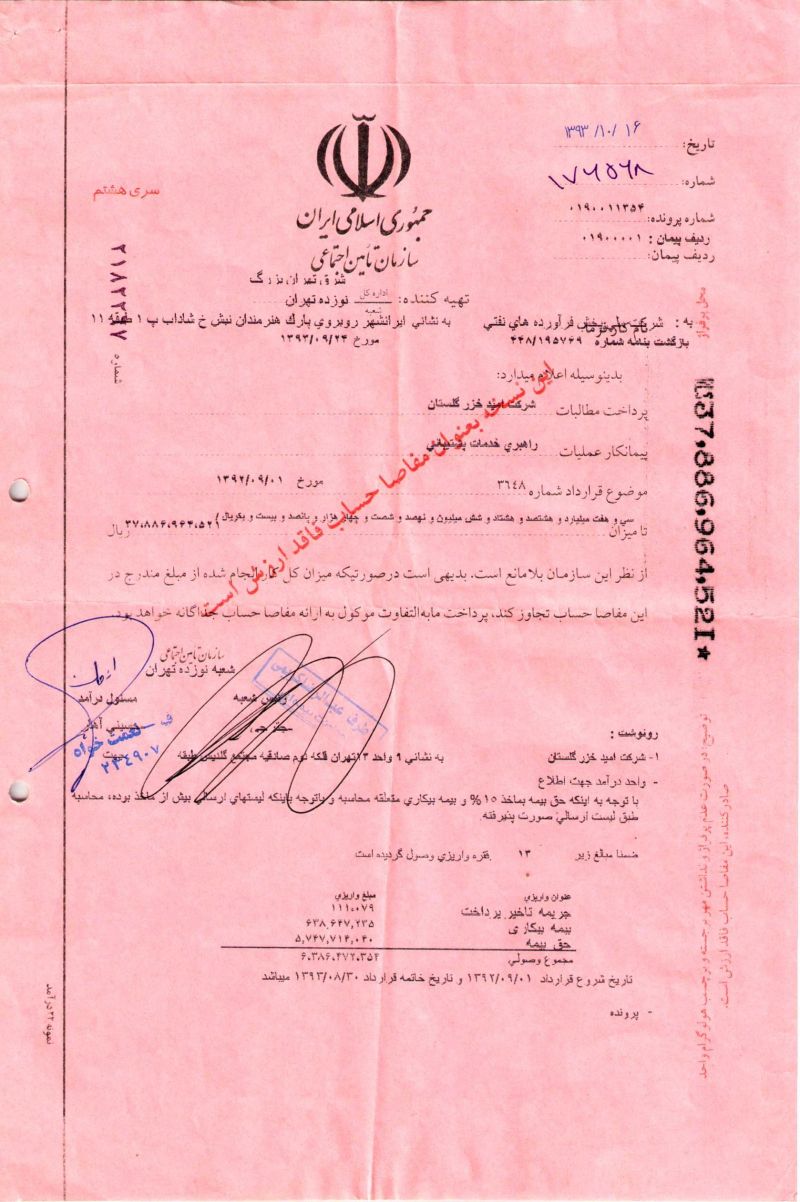 تاریخ: ۱۳۹۳/۱۰/۱۶
شماره: ۱۷۶۵۶۸
شماره پرونده: ۰۱۹۰۰۱۱۳۵۴
ردیف پیمان : ۰۱۹۰۰۰۰۱
ردیف پیمان:
سری هشتم
جمهوری اسلامی ایران
سازمان تأمین اجتماعی
شرق تهران بزرگ
تهیه کننده: اداره کل شعبه نوزده تهران
به : شرکت ملی پخش فرآورده های نفتی به نشانی ایرانشهر روبروی پارک هنرمندان نبش خ شاداب پ ۱ طبقه ۱۱
نام کارفرما
بازگشت بنامه شماره ۴۴۸/۱۹۵۷۶۹ مورخ ۱۳۹۳/۰۹/۲۴
شماره
محل پرفراژ
37,886,964,521*
بدینوسیله اعلام میدارد:
پرداخت مطالبات شرکت امید خزر گلستان
پیمانکار عملیات راهبری خدمات پشتیبانی
موضوع قرارداد شماره ۳۶۴۸ مورخ ۱۳۹۲/۰۹/۰۱
سی و هفت میلیارد و هشتصد و هشتاد و شش میلیون و نهصد و شصت و چهار هزار و پانصد و بیست و یکریال
تا میزان ۳۷،۸۸۶،۹۶۴،۵۲۱ ریال
این نسخه بعنوان مفاصا حساب فاقد ارزش است
از نظر این سازمان بلامانع است. بدیهی است درصورتیکه میزان کل کار انجام شده از مبلغ مندرج در
این مفاصا حساب تجاوز کند، پرداخت مابه‌التفاوت موکول به ارائه مفاصا حساب جداگانه خواهد بود.
سازمان تأمین اجتماعی
شعبه نوزده تهران
رئیس شعبه مسئول درآمد
نعمت خواه
۲۳۴۹۰۷
رونوشت :
۱- شرکت امید خزر گلستان به نشانی ۹ واحد ۱۳تهران فلکه دوم صادقیه مجتمع گلدیس طبقه
- واحد درآمد جهت اطلاع
با توجه به اینکه حق بیمه بماخذ ۱۵% و بیمه بیکاری متعلقه محاسبه و باتوجه باینکه لیستهای ارسالی بیش از ماخذ بوده، محاسبه
طبق لیست ارسالی صورت پذیرفته.
ضمنا مبالغ زیر ۱۳ فقره واریزی وصول گردیده است
عنوان واریزی مبلغ واریزی
جریمه تاخیر پرداخت ۱۱۱،۰۷۹
بیمه بیکاری ۶۳۸,۶۴۷,۲۳۵
حق بیمه ۵,۷۴۷,۷۱۴,۰۴۰
مجموع وصولی ۶،۳۸۶،۴۷۲،۳۵۴
تاریخ شروع قرارداد ۱۳۹۲/۰۹/۰۱ و تاریخ خاتمه قرارداد ۱۳۹۳/۰۸/۳۰ میباشد
- پرونده
توضیح: در صورت عدم پرفراژ و نداشتن مهر برجسته و برچسب هولوگرام واحد
صادرکننده، این مفاصا حساب فاقد ارزش است.
نمونه ۲۲ درآمد